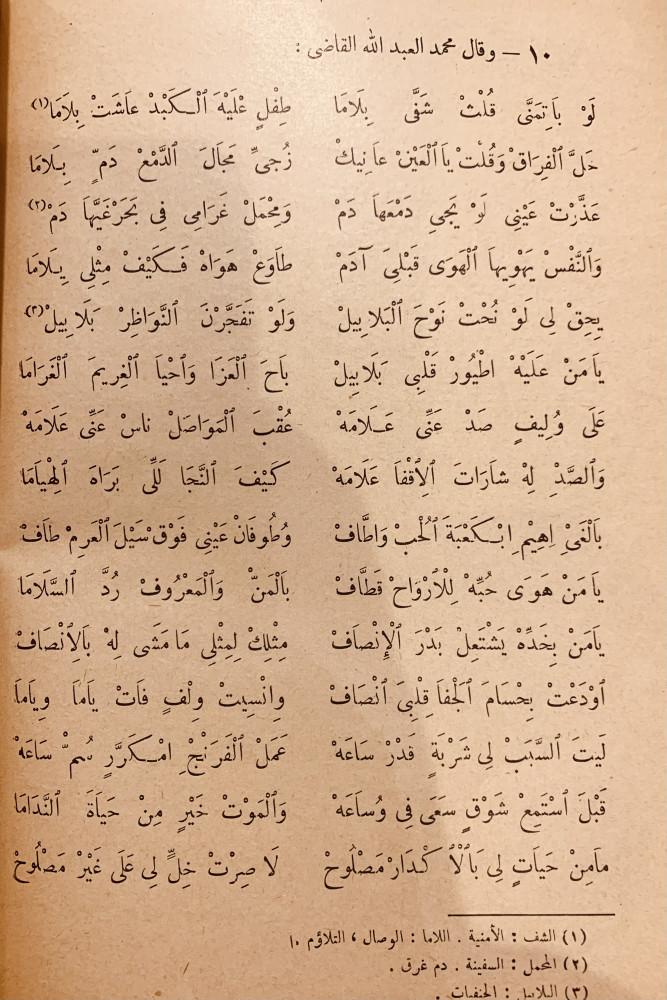 ١٠ – وقال محمد العبد الله القاضى :
لَوْ بَاتِمَنَّى قُلْتْ شَفَّى بِلَامَا طِفْلٍ عْلَيْهَ ٱلْكَبْدْ عَاشَتْ بِلَامَا(١)
خَلَّ ٱلْفِرَاقْ وَقُلْتْ يَا ٱلْعَيْنْ عَانِيكْ زُجىِّ مَجَالَ ٱلدَّمْعْ دَمّ بِلَامَا
عَذَّرْتْ عَيْنِى لَوْ يَجِى دَمْعَهَا دَمْ وَمِحْمَلْ غَرَامِى فِى بَحَرْغَيَّهَا دَمْ(٢)
وَٱلنَّفْسْ يَهْوِيهَا ٱلْهَوَى قَبْلِىَ آدَمْ طَاوَعْ هَوَاهْ فَكَيْفْ مِثْلِى بِلَامَا
يِحِقْ لِى لَوْ نُحْتْ نَوْحَ ٱلْبَلَابِيلْ وَلَوْ تَفَجَّرْنَ ٱلنَّوَاظِرْ بَلَابِيلْ(٣)
يَامَنْ عَلَيْهْ اطْيُورْ قَلْبِى بَلَابِيلْ بَاحَ ٱلْعَزَا وَٱحْيَا ٱلْغِرِيمَ ٱلْغَرَامَا
عَلَى وُلِيفٍ صَدْ عَنِّى عَلَامَهْ عُقْبَ ٱلْمَوَاصَلْ نَاسْ عَنِّى عَلَامَهْ
وَٱلصَّدْ لِهْ شَارَاتَ ٱلِاقْفَا عَلَامَهْ كَيْفَ ٱلنَّجَا لَلِّى بَرَاهَ ٱلْهْيَامَا
بَٱلْغَىْ اِهِيْمِ ابْكَعْبَةَ ٱلْحْبْ وَاطَّافْ وُطُوفَانْ عَيْنِى فَوْقْ سَيْلَ ٱلْعَرِمْ طَافْ
يَامَنْ هَوَى حُبِّهْ لِلْأَرْوَاحْ قَطَّافْ بَٱلْمَنّْ وَٱلْمَعْرُوفْ رُدَّ ٱلسَّلَامَا
يَامَنْ بِخَدِّهْ يَشْتَعِلْ بَدْرَ ٱلْإِنْصَافْ مِثْلِكْ لِمِثْلِى مَامَشَى لِهْ بَٱلِانْصَافْ
اَوْدَعْتْ بِحْسَامَ ٱلْجْفَا قِلْبِىَ ٱنْصَافْ وِانْسِيتْ وِلْفٍ فَاتْ يَامَا وِيَامَا
لَيتَ ٱلسَّبَبْ لِى شَرْبَةٍ قَدْرْ سَاعَهْ عَمَلْ ٱلْفَرَنْجِ امْكَرَّرٍ سُمّْ سَاعَهْ
قَبْلَ ٱسْتَمِعْ شَوْقٍ سَعَى فِى وُسَاعَهْ وَٱلْمَوْتْ خَيْرٍ مِنْ حَيَاةَ ٱلنَّدَامَا
مَامِنْ حَيَاتٍ لِى بَٱلْاَكْدَارْ مَصْلُوحْ لَا صِرْتْ خِلٍّ لِى عَلَى غَيْرْ مَصْلُوحْ
(١) الشف : الأمنية . اللاما : الوصال ، التلاؤم .
(٢) المحمل : السفينة . دم غرق .
(٣) البلابيل : الحنفيات .